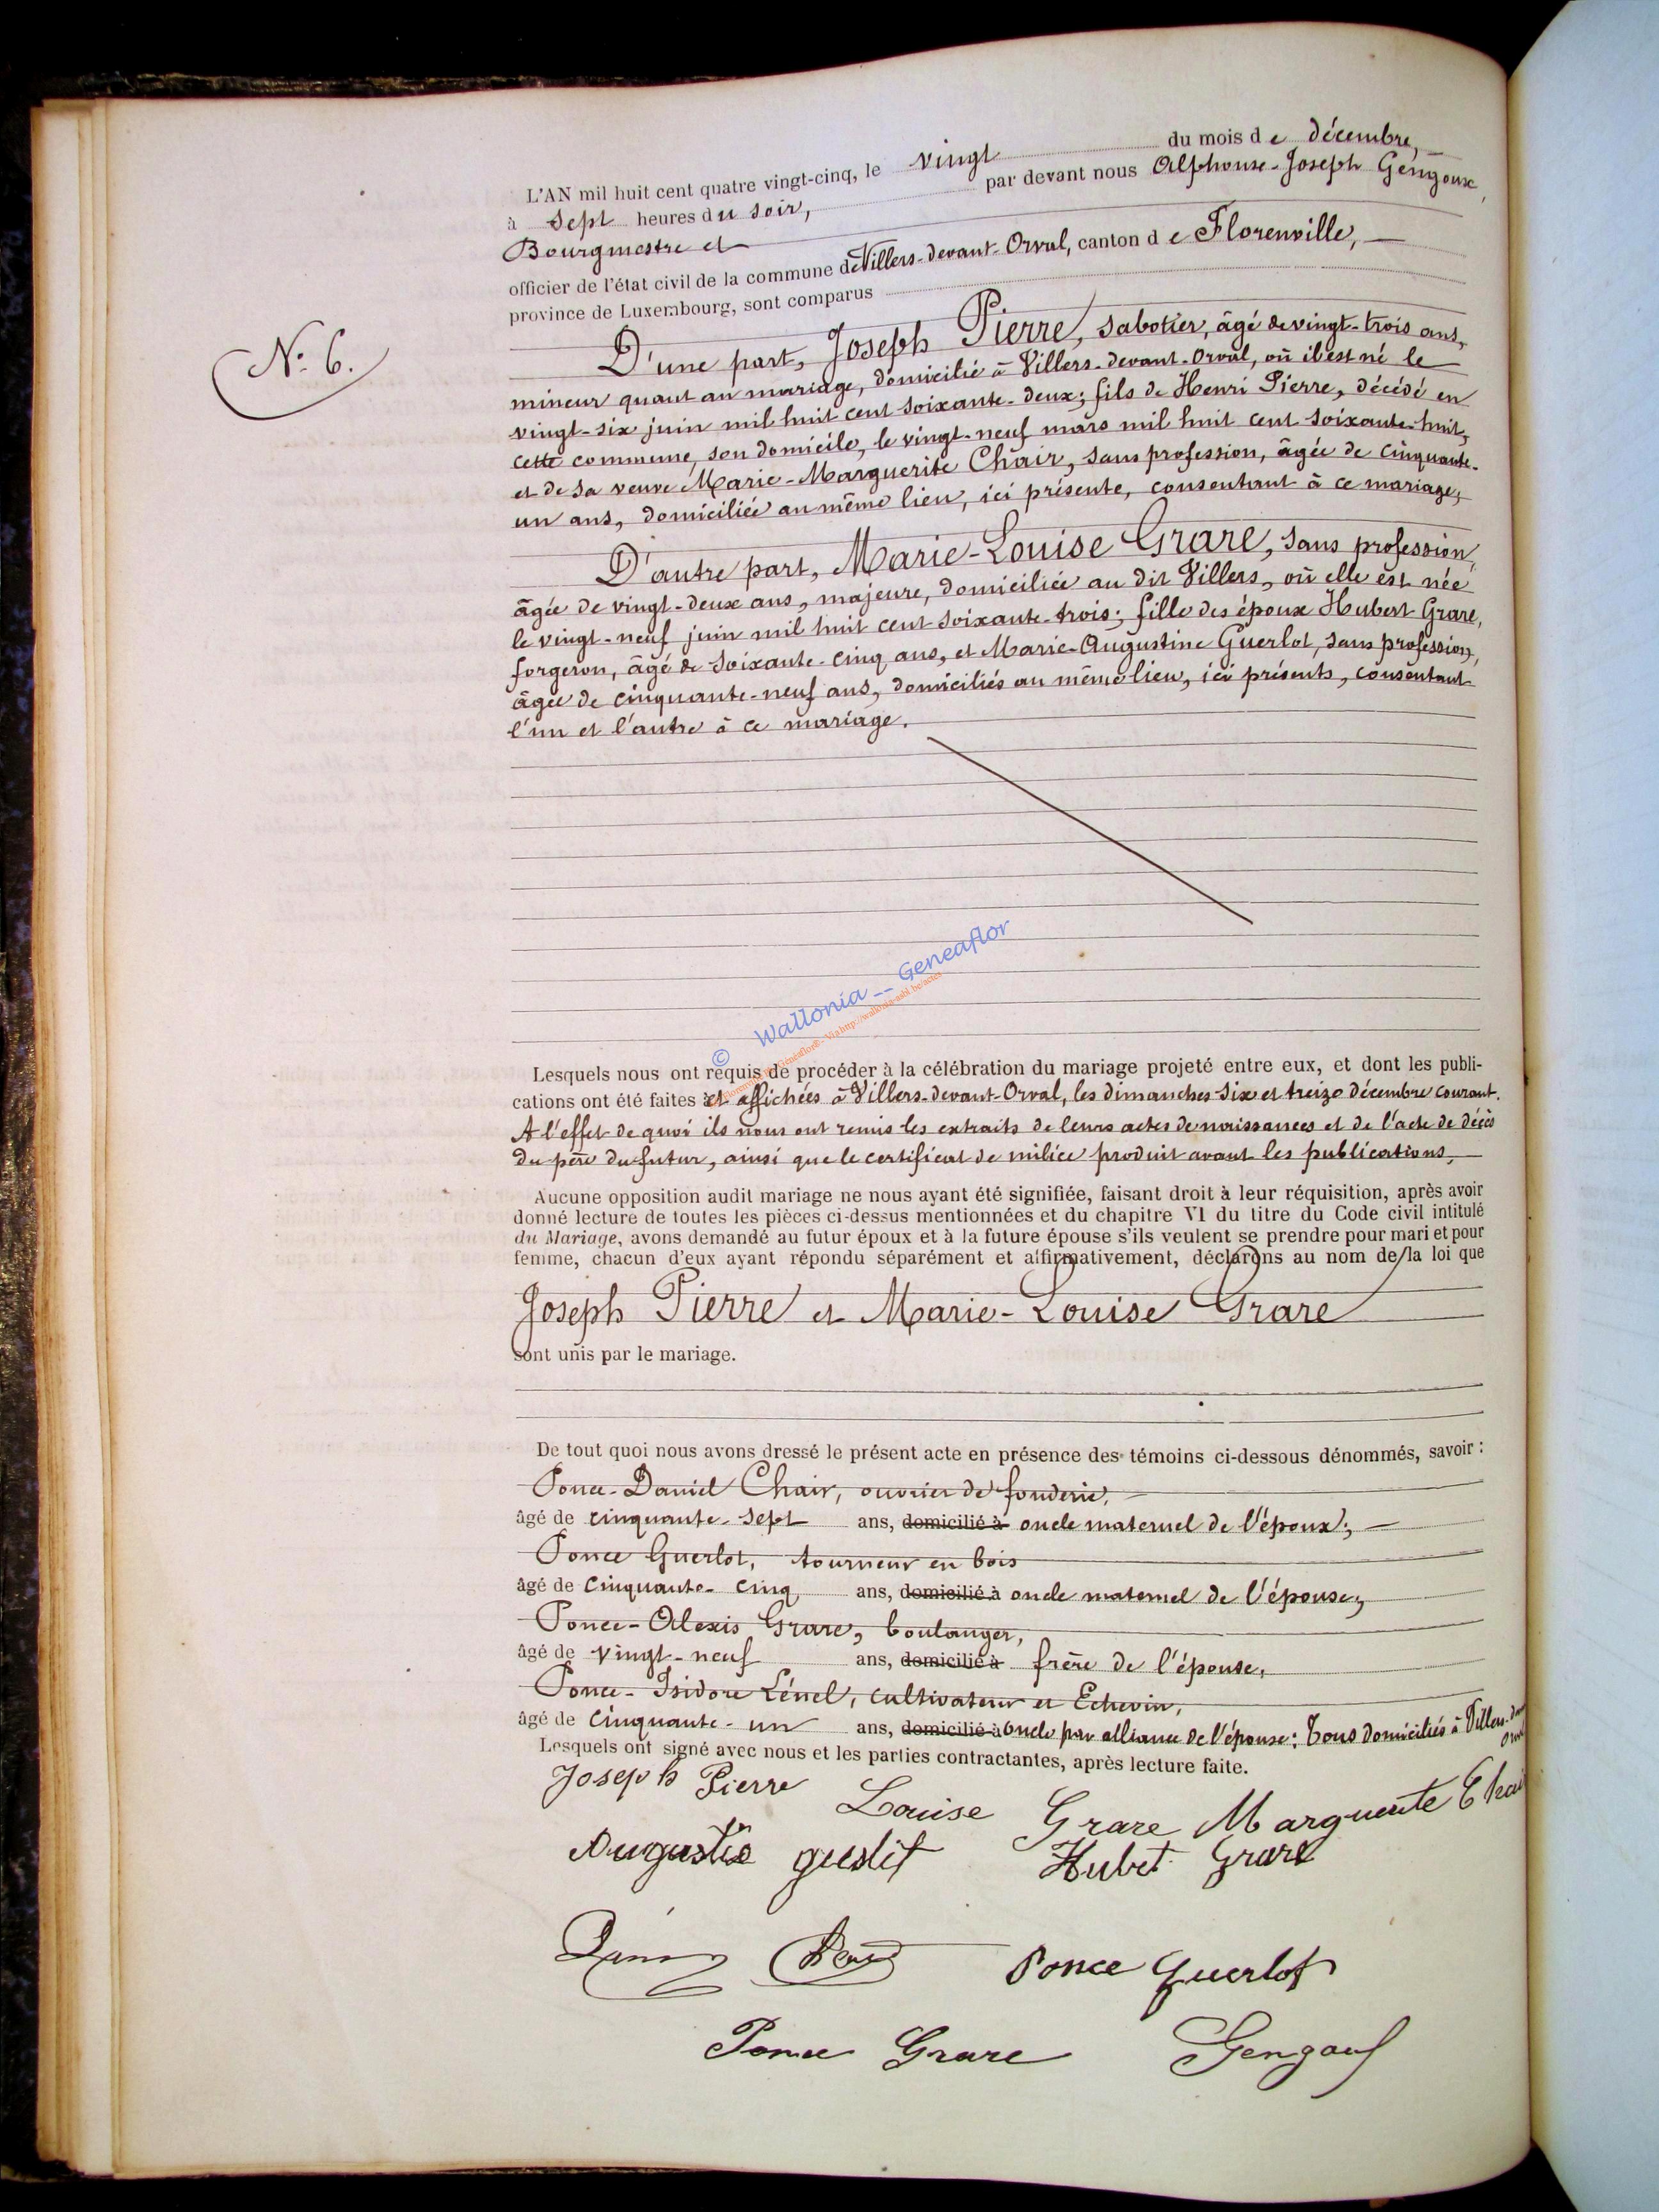 L'AN mil huit cent quatre vingt-cinq, le vingt du mois de décembre,
à sept heures du soir, par devant nous Alphonse-Joseph Gengoux,
Bourgmestre et
officier de l'état civil de la commune de Villers-devant-Orval, canton de Florenville,
province de Luxembourg, sont comparus
N° 6.
D'une part, Joseph Pierre, sabotier, âgé de vingt-trois ans,
mineur quant au mariage, domicilié à Villers-devant-Orval, où il est né le
vingt-six juin mil huit cent soixante-deux; fils de Henri Pierre, décédé en
cette commune, son domicile, le vingt-neuf mars mil huit cent soixante-huit,
et de sa veuve Marie-Marguerite Chair, sans profession, âgée de cinquante-
un ans, domiciliée au même lieu, ici présente, consentant à ce mariage,
D'autre part, Marie-Louise Grare, sans profession,
âgée de vingt-deux ans, majeure, domiciliée au dit Villers, où elle est née
le vingt-neuf juin mil huit cent soixante-trois; fille des époux Hubert Grare,
forgeron, âgé de soixante-cinq ans, et Marie-Augustine Guerlot, sans profession,
âgée de cinquante-neuf ans, domiciliés au même lieu, ici présents, consentant
l'un et l'autre à ce mariage.
© Wallonia -- Geneaflor
Via http://wallonia-asbl.be/actes
Lesquels nous ont requis de procéder à la célébration du mariage projeté entre eux, et dont les publi-
cations ont été faites et affichées à Villers-devant-Orval, les dimanches six et treize décembre courant.
A l'effet de quoi ils nous ont remis les extraits de leurs actes de naissances et de l'acte de décès
du père du futur, ainsi que le certificat de milice produit avant les publications,
Aucune opposition audit mariage ne nous ayant été signifiée, faisant droit à leur réquisition, après avoir
donné lecture de toutes les pièces ci-dessus mentionnées et du chapitre VI du titre du Code civil intitulé
du Mariage, avons demandé au futur époux et à la future épouse s'ils veulent se prendre pour mari et pour
femme, chacun d'eux ayant répondu séparément et affirmativement, déclarons au nom de la loi que
Joseph Pierre et Marie-Louise Grare
sont unis par le mariage.
De tout quoi nous avons dressé le présent acte en présence des témoins ci-dessous dénommés, savoir :
Ponce-Daniel Chair, ouvrier de fonderie,
âgé de cinquante-sept ans, domicilié à oncle maternel de l'époux;
Ponce Guerlot, tourneur en bois
âgé de cinquante-cinq ans, domicilié à oncle maternel de l'épouse,
Ponce-Alexis Grare, boulanger,
âgé de vingt-neuf ans, domicilié à frère de l'épouse,
Ponce-Isidore Lénel, cultivateur et Echevin,
âgé de cinquante-un ans, domicilié à oncle par alliance de l'épouse: Tous domiciliés à Villers-
Lesquels ont signé avec nous et les parties contractantes, après lecture faite.
Joseph Pierre Louise Grare Marguerite Chair
Hubert Grare
Ponce Guerlot
Ponce Grare Gengoux